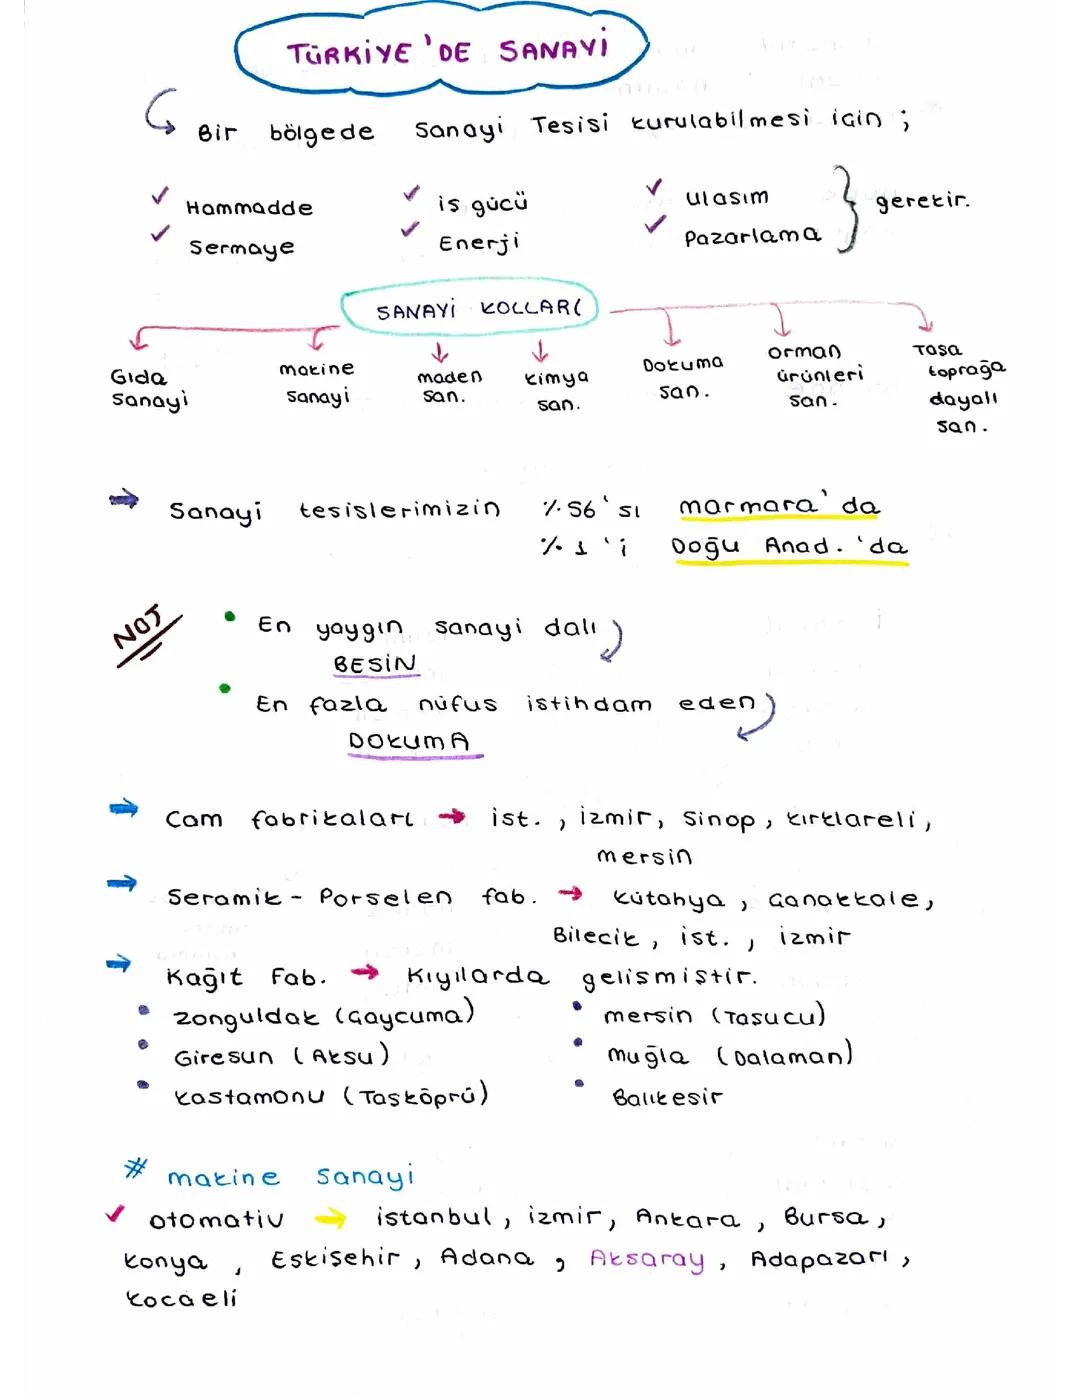 TÜRKİYE'DE SANAYİ
Bir bölgede Sanayi Tesisi kurulabilmesi için ;
✓ Hammadde ✓ iş gücü ✓ ulaşım } gerekir.
✓ Sermaye ✓ Enerji ✓ Pazarlama
SANAYİ KOLLARI
Gıda sanayi
makine sanayi
maden san.
kimya san.
Dokuma san.
orman ürünleri san.
Taşa toprağa dayalı san.
⇒ Sanayi tesislerimizin %56'sı marmara'da
%1'i Doğu Anad.'da
NOT
• En yaygın sanayi dalı
BESİN
• En fazla nüfus istihdam eden
DOKUMA
⇒ Cam fabrikaları → ist. , izmir, Sinop, kırklareli,
mersin
⇒ Seramik - Porselen fab. → kütahya, Çanakkale,
Bilecik, ist. , izmir
⇒ Kağıt Fab. → Kıyılarda gelişmiştir.
• Zonguldak (Çaycuma) • mersin (Taşucu)
• Giresun (Aksu) • muğla (Dalaman)
• kastamonu (Taşköprü) • Balıkesir
# makine sanayi
✓ otomativ → istanbul, izmir, Ankara, Bursa,
konya, Eskişehir, Adana, Aksaray, Adapazarı,
kocaeli